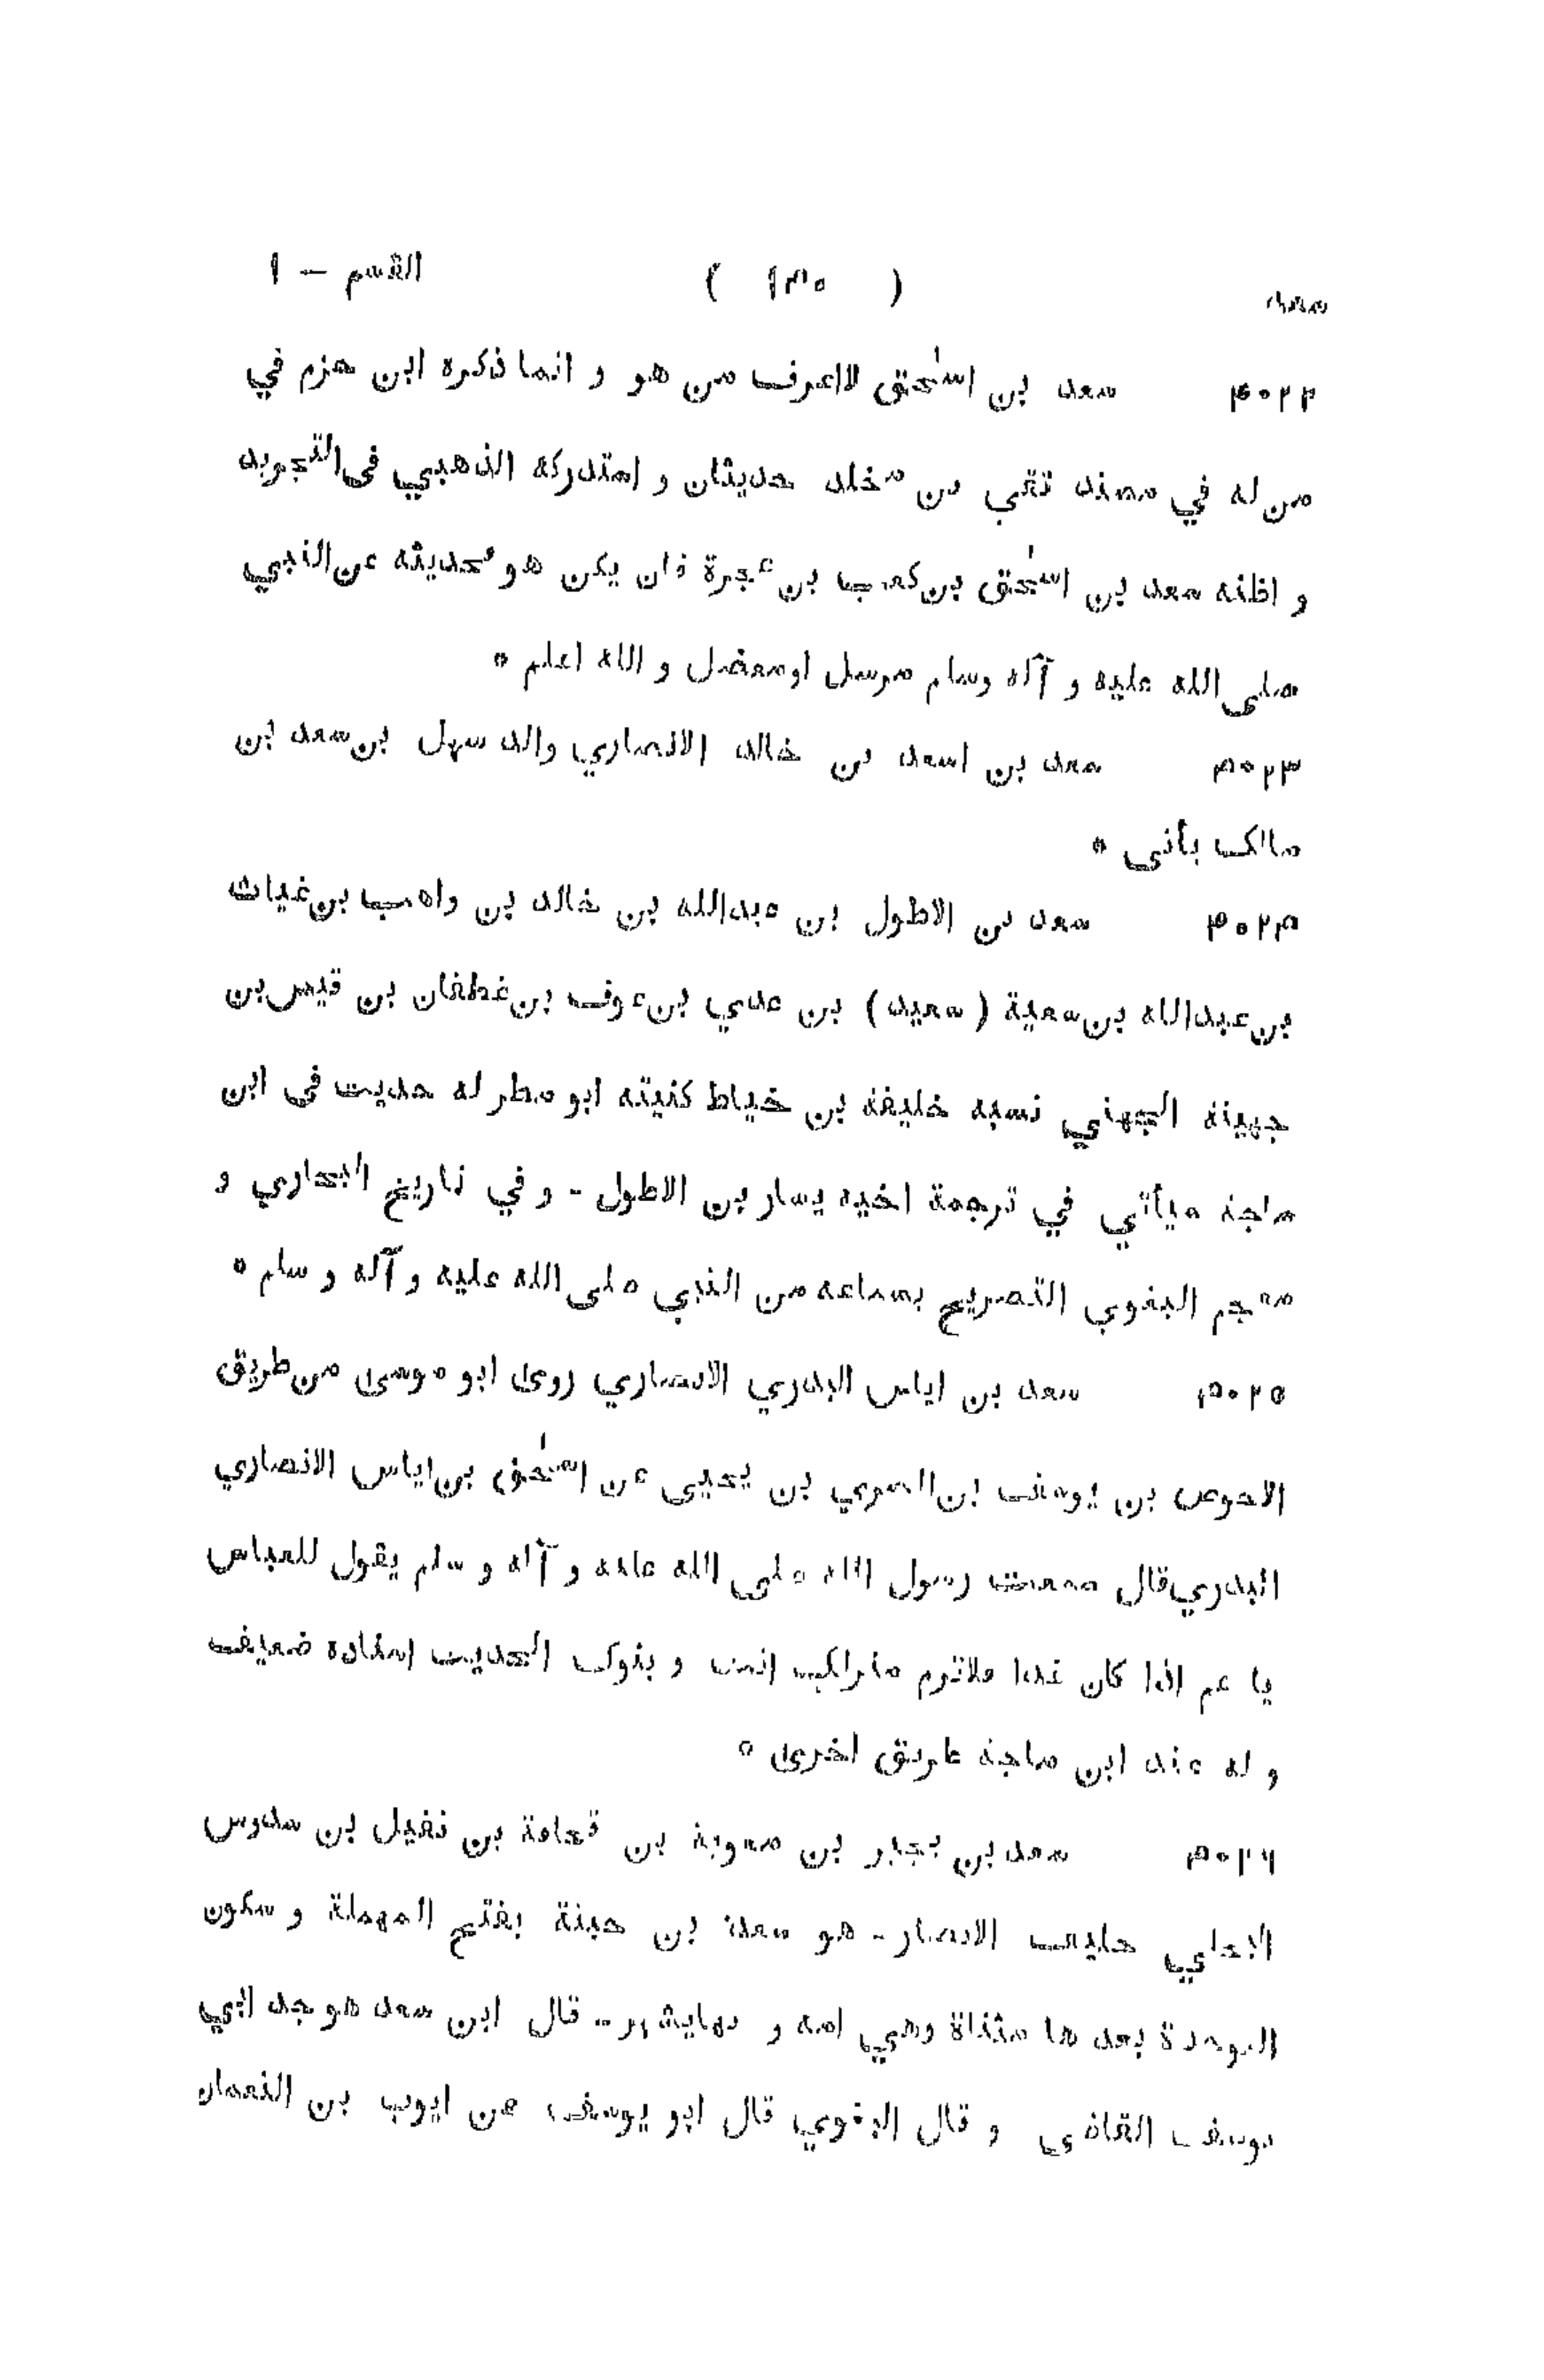 سعد ( ١٣٥ ) القسم — ١
٤٠٢٢ سعد بن اسحٰق لااعرف من هو و انما ذكره ابن حزم في
من له في مسند تقي بن مخلد حديثان و استدركه الذهبي فى التجريد
و اظنه سعد بن اسحٰق بن كعب بن عجرة فان يكن هو فحديثه عن النبي
صلى الله عليه و آله وسلم مرسل اومعضل و الله اعلم *
٤٠٢٣ سعد بن اسعد بن خالد الانصاري والد سهل بن سعد ابن
مالك يأتى *
٤٠٢٤ سعد بن الاطول بن عبدالله بن خالد بن واهب بن غياث
بن عبدالله بن سعية ( سعيد ) بن عدي بن عوف بن غطفان بن قيس بن
جهينة الجهني نسبه خليفة بن خياط كنيته ابو مطر له حديث فى ابن
ماجة سيأتي في ترجمة اخيه يسار بن الاطول - و في تاريخ البخاري و
معجم البغوي التصريح بسماعه من النبي صلى الله عليه و آله و سلم *
٤٠٢٥ سعد بن اياس البدري الانصاري روى ابو موسى من طريق
الاحوص بن يوسف بن السري بن يحيى عن اسحٰق بن اياس الانصاري
البدري قال سمعت رسول الله صلى الله عليه و آله و سلم يقول للعباس
يا عم اذا كان غدا فلاترم منزلك انت و بنوك الحديث اسناده ضعيف
و له عند ابن ماجة طريق اخرى *
٤٠٢٦ سعد بن بجير بن معوية بن قحافة بن نفيل بن سدوس
البجلي حليف الانصار - هو سعد بن حبتة بفتح المهملة و سكون
الموحدة بعد ها مثناة وهي امه و بهايشهر - قال ابن سعد هو جد ابي
يوسف القاضى و قال البغوي قال ابو يوسف عن ايوب بن النعمان